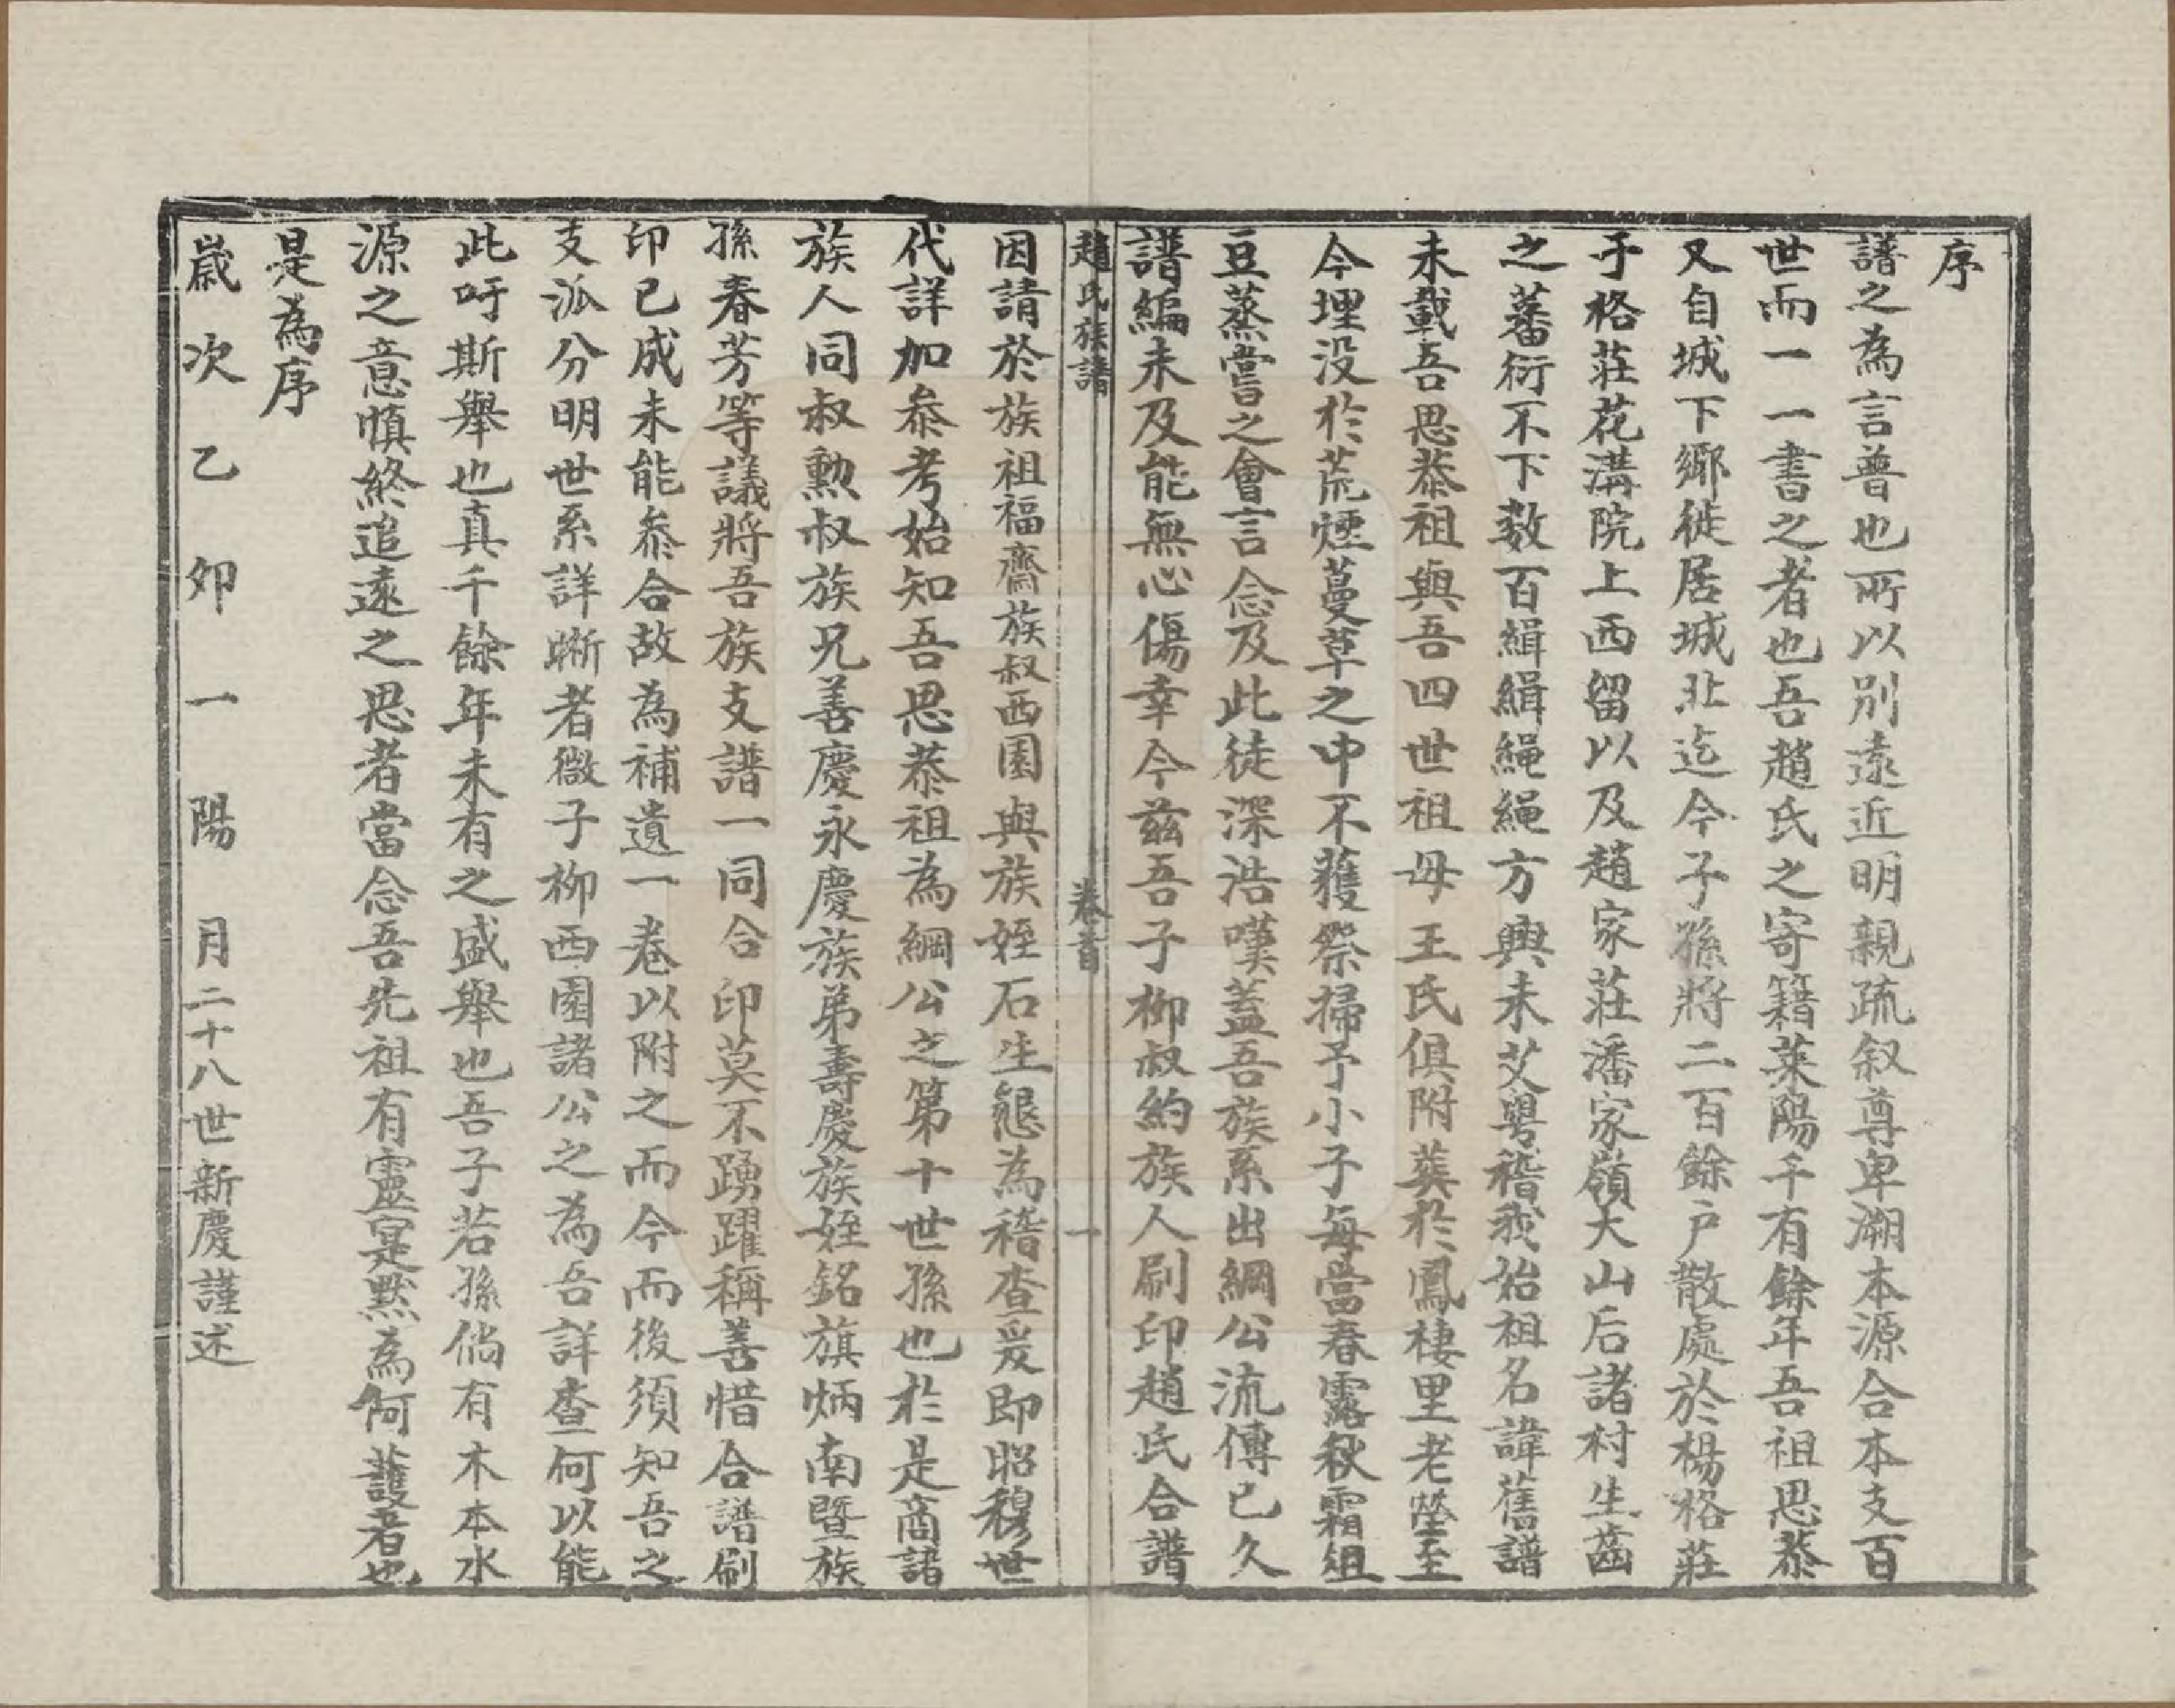 序
譜之為言普也所以別遠近明親疏叙尊卑溯本源合本支百
世而一一書之者也吾趙氏之寄籍萊陽千有餘年吾祖思恭
又自城下鄉徙居城北迄今子孫將二百餘戶散處於楊格莊
于格莊花溝院上西留以及趙家莊潘家嶺大山后諸村生齒
之蕃衍不下数百緝緝繩繩方興未艾粵稽我始祖名諱舊譜
未載吾思恭祖與吾四世祖母王氏俱附葬於鳳棲里老塋至
今埋没於荒煙蔓草之中不獲祭掃予小子每當春露秋霜俎
豆蒸嘗之會言念及此徒深浩嘆蓋吾族系出綱公流傳已久
譜編未及能無心傷幸今兹吾子柳叔約族人刷印趙氏合譜
趙氏族譜 卷首 一
因請於族祖福齋族叔西園與族姪石生懇為稽查爰即昭穆世
代詳加叅考始知吾思恭祖為綱公之第十世孫也於是商諸
族人同叔勲叔族兄善慶永慶族弟壽慶族姪銘旗炳南暨族
孫春芳等議將吾族支譜一同合印莫不踴躍稱善惜合譜刷
印已成未能叅合故為補遺一卷以附之而今而後須知吾之
支派分明世系詳晰者微子柳西園諸公之為吾詳查何以能
此吁斯舉也真千餘年未有之盛舉也吾子若孫倘有木本水
源之意慎終追遠之思者當念吾先祖有靈寔默為呵護者也
是為序
歲次乙卯一陽月二十八世新慶謹述